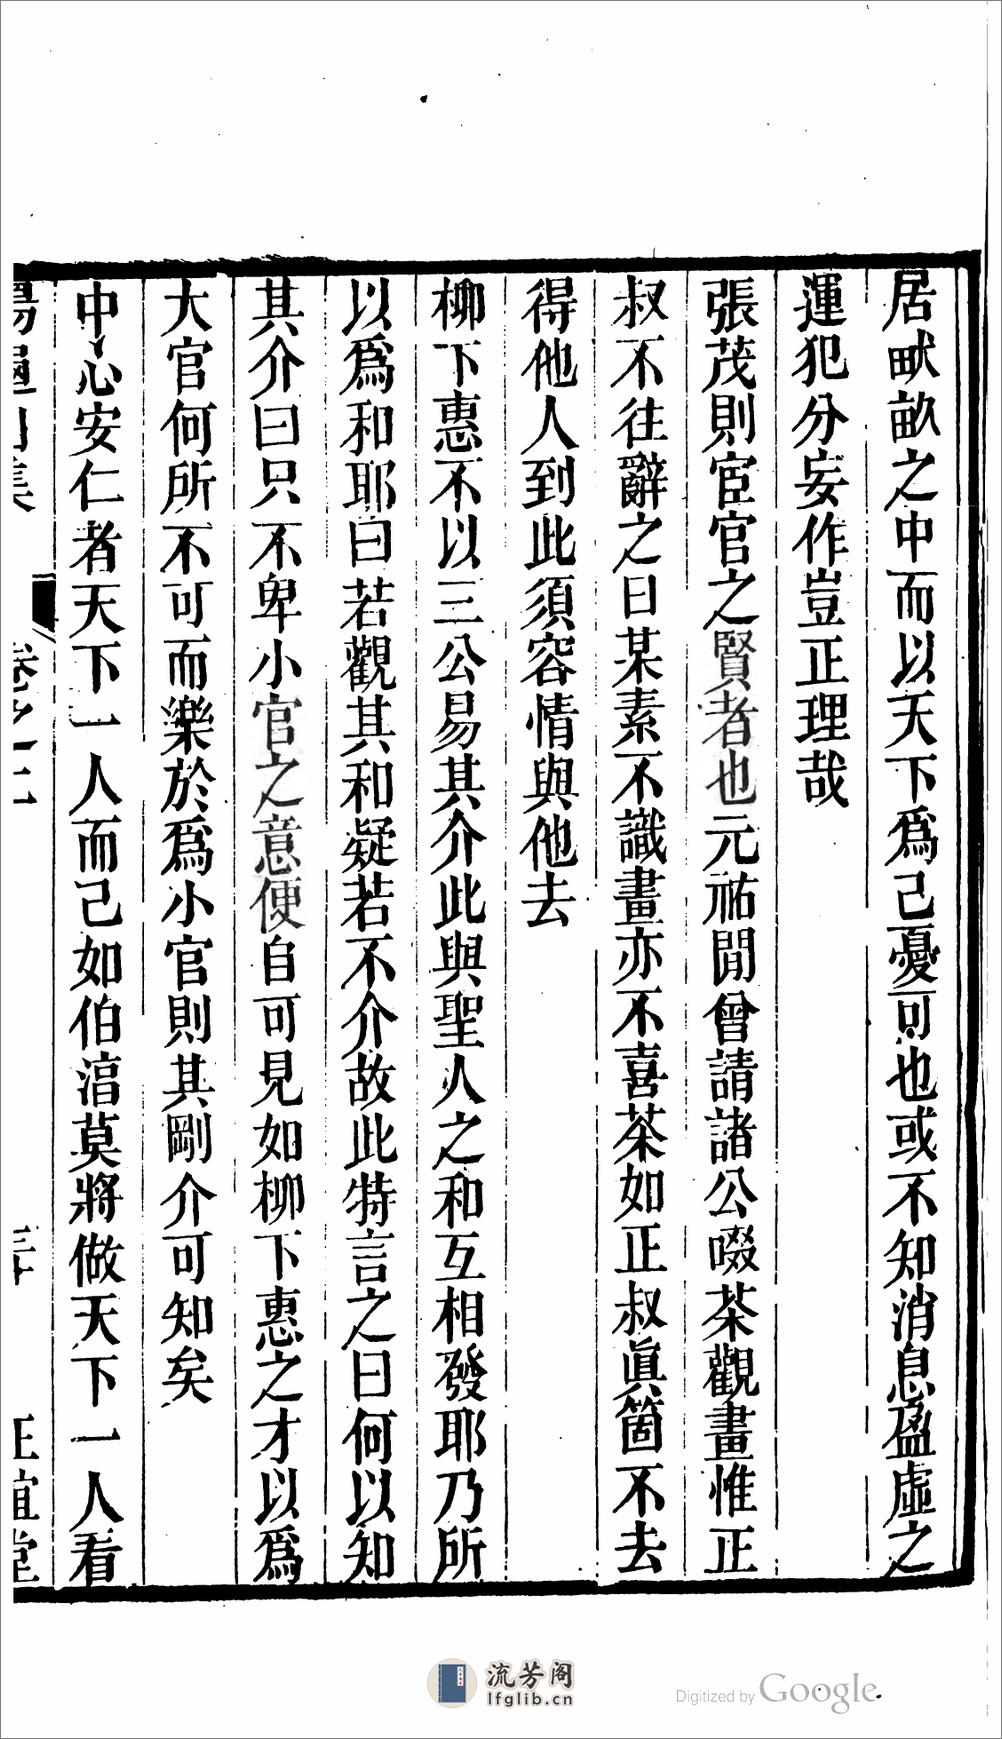 居畎畝之中而以天下爲己憂可也或不知消息盈虛之
運犯分妄作豈正理哉
張茂則宦官之賢者也元祐閒曾請諸公啜茶觀畫惟正
叔不往辭之曰某素不識畫亦不喜茶如正叔眞箇不去
得他人到此須容情與他去
柳下惠不以三公易其介此與聖人之和互相發耶乃所
以爲和耶曰若觀其和疑若不介故此特言之曰何以知
其介曰只不卑小官之意便自可見如柳下惠之才以爲
大官何所不可而樂於爲小官則其剛介可知矣
中心安仁者天下一人而己如伯淳莫將做天下一人看
卷之二
三十
正誼堂
流芳阁
lfglib.cn
Digitized by Google